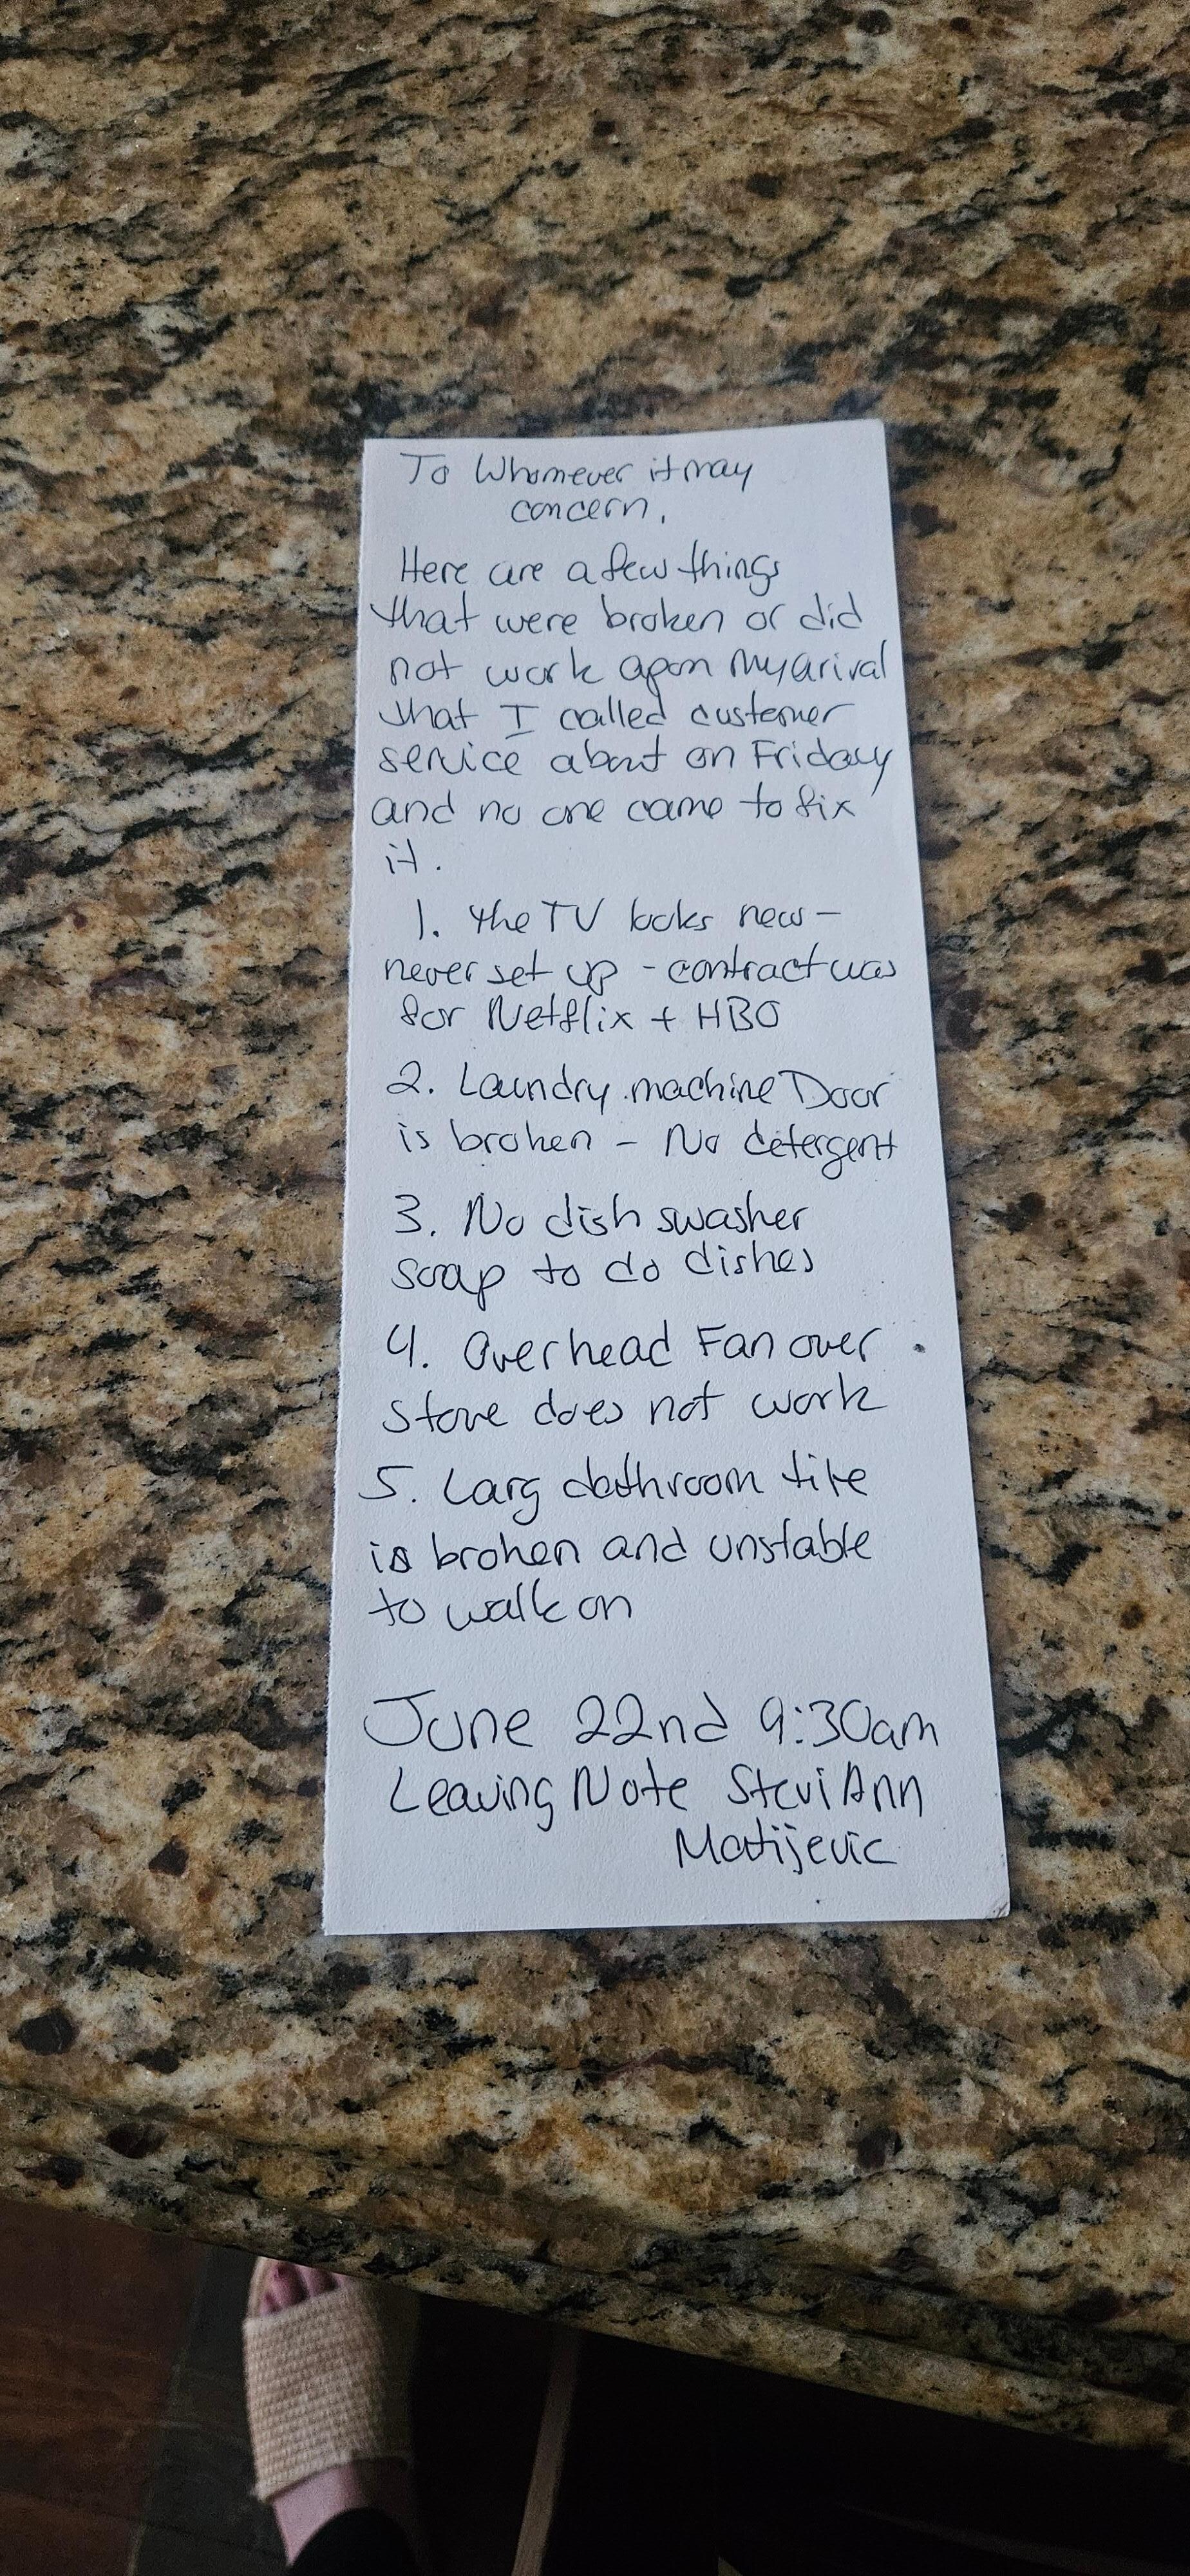 To Whomever it may
concern,
Here are a few things
that were broken or did
not work apon my arival
that I called customer
service about on Friday
and no one came to fix
it.
1. the TV looks new -
never set up - contract was
for Netflix + HBO
2. Laundry machine Door
is broken - No detergent
3. No dish swasher
soap to do dishes
4. Overhead Fan over
stove does not work
5. Larg bathroom tile
is broken and unstable
to walk on
June 22nd 9:30am
Leaving Note SteviAnn
Matijevic